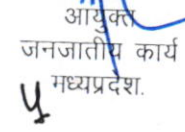 आयुक्त
जनजातीय कार्य
मध्यप्रदेश.